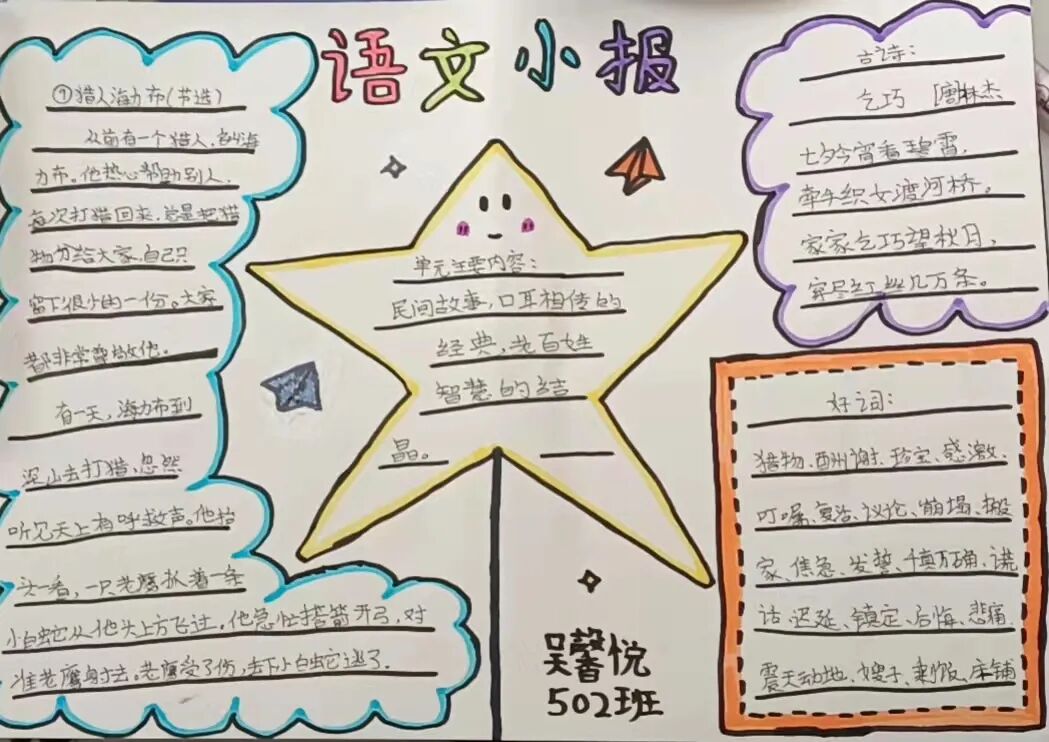 语文小报
①猎人海力布(节选)
从前有一个猎人,名叫海
力布。他热心帮助别人,
每次打猎回来,总是把猎
物分给大家,自己只
留下很少的一份。大家
都非常尊敬他。
有一天,海力布到
深山去打猎,忽然
听见天上有呼救声。他抬
头一看,一只老鹰抓着一条
小白蛇从他头上方飞过。他急忙搭箭开弓,对
准老鹰射去。老鹰受了伤,丢下小白蛇逃了.
单元主要内容:
民间故事,口耳相传的
经典,老百姓
智慧的结
晶。
古诗:
乞巧 [唐]林杰
七夕今宵看碧霄,
牵牛织女渡河桥。
家家乞巧望秋月,
穿尽红丝几万条。
好词:
猎物、酬谢、珍宝、感激、
叮嘱、复活、议论、崩塌、搬
家、焦急、发誓、千真万确、谎
话、迟延、镇定、后悔、悲痛、
震天动地、嫂子、剩饭、床铺
吴馨悦
502班